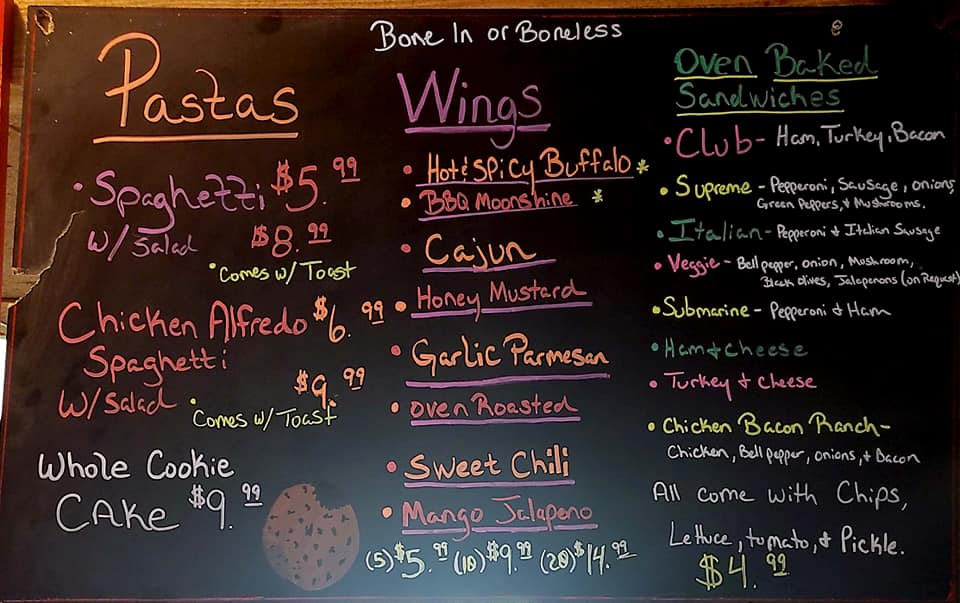 Pastas
• Spaghetti $5.99
w/ Salad $8.99
• Comes w/ Toast
Chicken Alfredo $6.99
Spaghetti
w/ Salad $9.99
• Comes w/ Toast
Whole Cookie
Cake $9.99
Bone In or Boneless
Wings
• Hot & Spicy Buffalo *
• BBQ Moonshine *
• Cajun
• Honey Mustard
• Garlic Parmesan
• Oven Roasted
• Sweet Chili
• Mango Jalapeno
(5) $5.99 (10) $9.99 (20) $14.99
Oven Baked
Sandwiches
• Club - Ham, Turkey, Bacon
• Supreme - Pepperoni, Sausage, onions,
Green Peppers, & Mushrooms.
• Italian - Pepperoni & Italian Sausage
• Veggie - Bell pepper, onion, Mushroom,
Black Olives, Jalepenons (on Request)
• Submarine - Pepperoni & Ham
• Ham & Cheese
• Turkey & Cheese
• Chicken Bacon Ranch -
Chicken, Bell pepper, onions, & Bacon
All come with Chips,
Lettuce, tomato, & Pickle.
$4.99